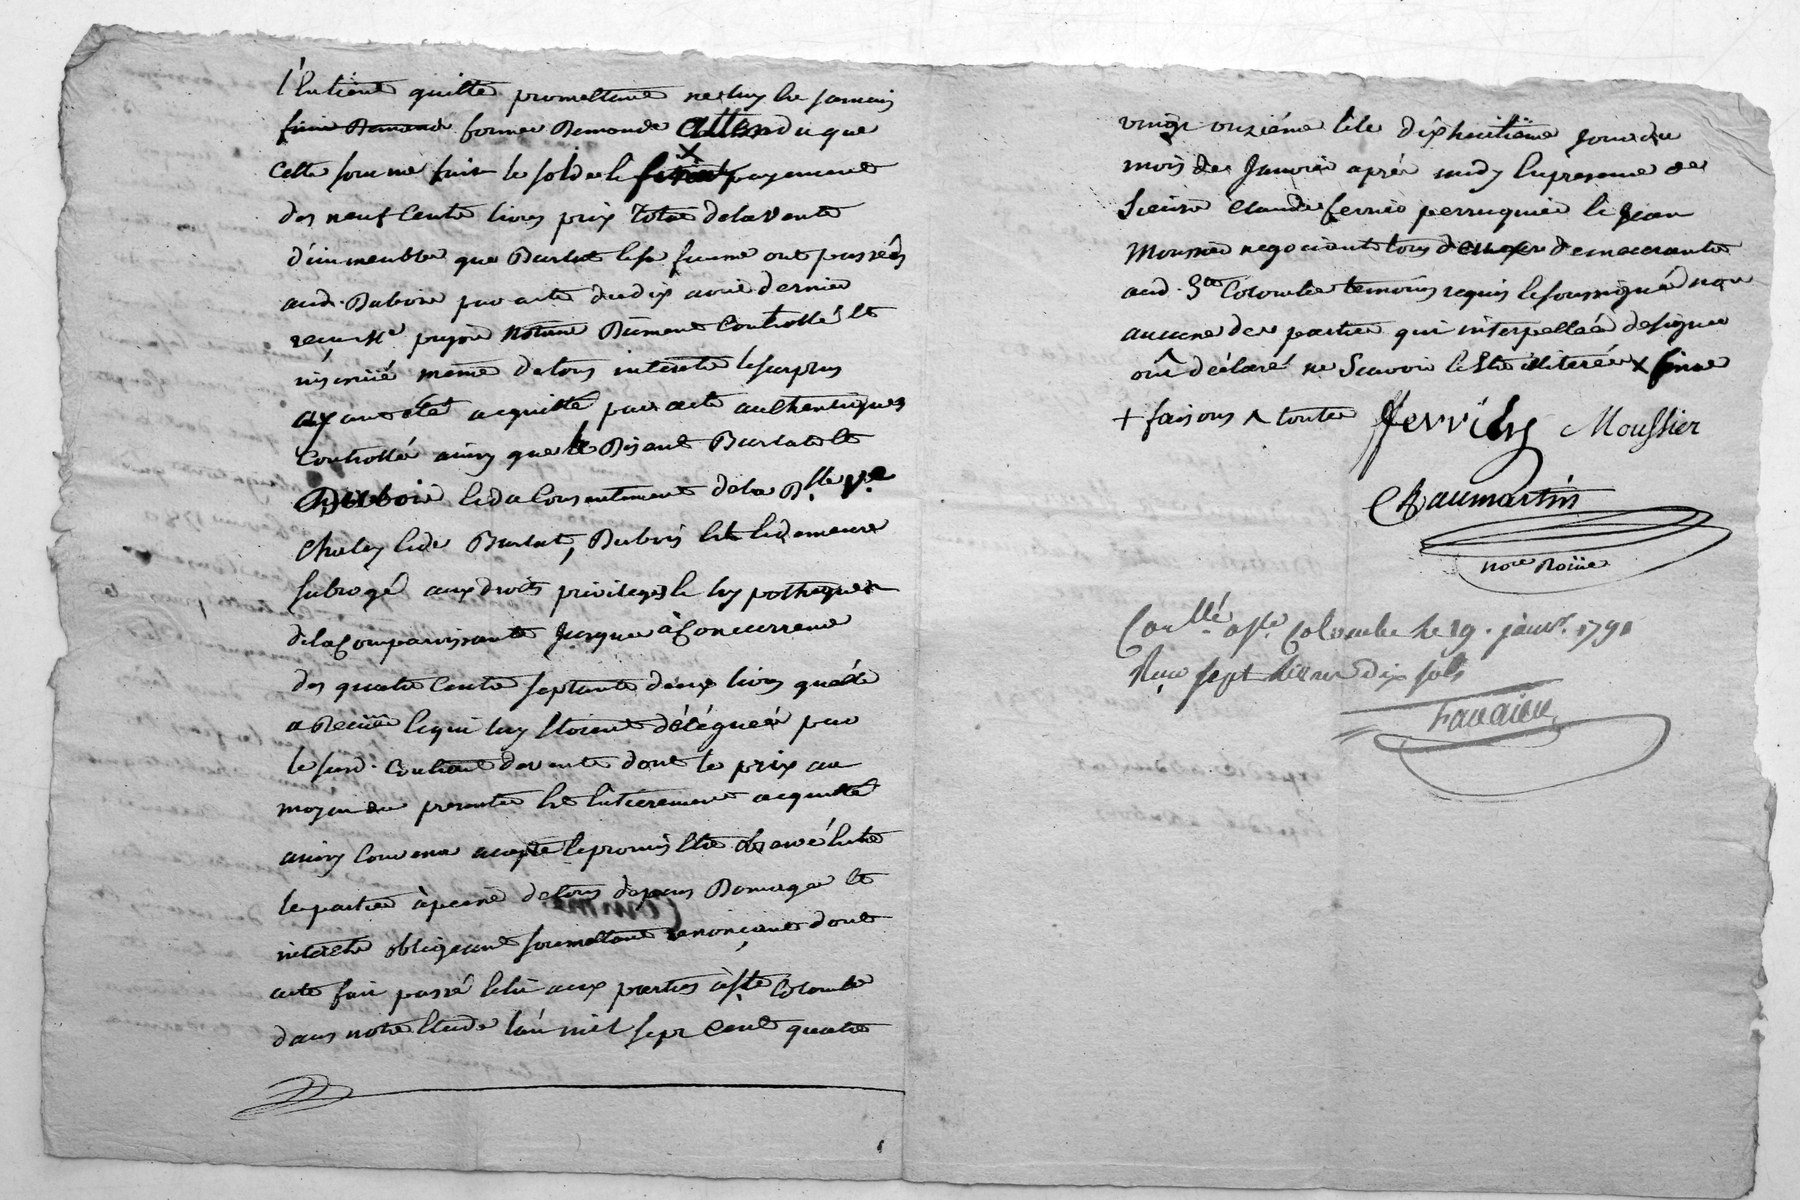 l'entient quitte promettant ne luy en jamais
faire Demande former Demande attendu que
cette somme fait le solde et payement
des neuf cents livres prix total de la vente
d'immeuble que Burlat et sa femme ont passées
aud. Duboie par acte du dix avril dernier
reçu Me notaire Dument Controllé et
insinüé même de tous interets le surplus
ayant eté acquitté par acte authentiques
Controllé ainsy que le Disent Burlat et
Duboie et du Consentement de la Dlle ve
Chaley et de Burlat, Dubois est et demeure
subrogé aux droits privileges et hypotheques
de la Comparaissante jusque à Concurrence
des quatre cents septante deux livres quelle
a Recüe et qui luy etoient déléguées par
le susd. Contrat de vente dont le prix au
moyen du presente est entierement acquitté
ainsy Convenu accepté et promis etre observé entre
les parties à peine de tous depens Domages et
interets obligeant soumettant renonciant dont
acte fait passé et lu aux parties à Ste Colombe
dans notre Etude l'an mil sept cent quatre
vingt onzième et le dixhuitième jour du
mois de Janvier après midy en presence de
Sieurs Claude ferrie perruquier et Jean
Moussier negociant tous deux demeurants
aud. Ste Colombe temoins requis et soussignés non
aucune des parties qui interpellées de signer
ont déclaré ne Scavoir et Etre illiterées x
+ faisons ^ toute Moussier
Chaumartin
nore Roïale
Conllé a Ste Colombe le 19. janvr. 1791
Reçu sept livres dix sols